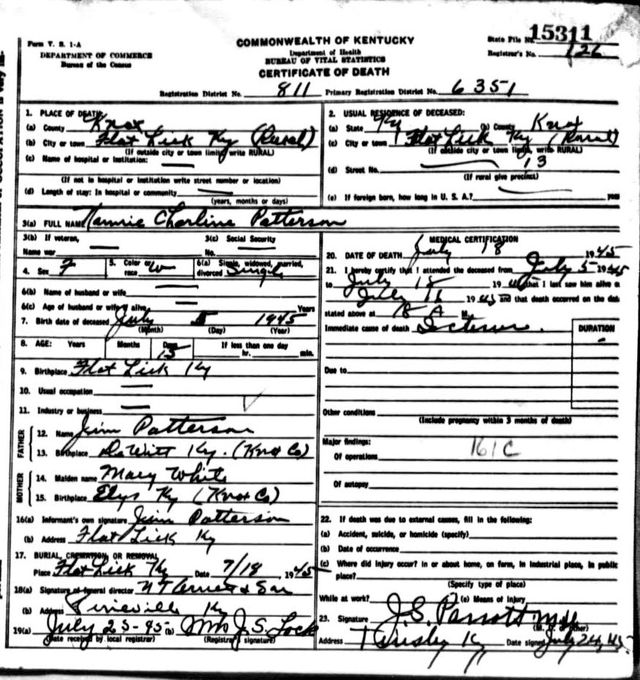 Form V. S. 1-A
DEPARTMENT OF COMMERCE
Bureau of the Census
COMMONWEALTH OF KENTUCKY
Department of Health
BUREAU OF VITAL STATISTICS
CERTIFICATE OF DEATH
State File No. 15311
Registrar's No. 126
Registration District No. 811 Primary Registration District No. 6351
1. PLACE OF DEATH:
(a) County Knox
(b) City or town Flat Lick Ky (Rural)
(If outside city or town limits, write RURAL)
(c) Name of hospital or institution:
(If not in hospital or institution write street number or location)
(d) Length of stay: In hospital or community
(years, months or days)
2. USUAL RESIDENCE OF DECEASED:
(a) State Ky (b) County Knox
(c) City or town Flat Lick Ky Rural
(If outside city or town limits, write RURAL)
(d) Street No. 13
(If rural give precinct)
(e) If foreign born, how long in U. S. A.? years
3(a) FULL NAME Nannie Charline Patterson
3(b) If veteran, Name war 3(c) Social Security No.
4. Sex F 5. Color or race W 6(a) Single, widowed, married, divorced Single
6(b) Name of husband or wife
6(c) Age of husband or wife if alive Years
7. Birth date of deceased July 5 1945
(Month) (Day) (Year)
8. AGE: Years Months Days 13 If less than one day hr. min.
9. Birthplace Flat Lick Ky
10. Usual occupation
11. Industry or business
FATHER
12. Name Jim Patterson
13. Birthplace DeWitt Ky. (Knox Co)
MOTHER
14. Maiden name Mary White
15. Birthplace Elys Ky (Knox Co)
16(a) Informant's own signature Jim Patterson
(b) Address Flat Lick Ky
17. BURIAL, CREMATION, OR REMOVAL
Place Flat Lick Ky Date 7/18 1945
18(a) Signature of funeral director & Son
(b) Address Pineville Ky
19(a) July 25-45 (b) Mrs J. S. Lock
(Date received by local registrar) (Registrar's signature)
MEDICAL CERTIFICATION
20. DATE OF DEATH July 18 1945
21. I hereby certify that I attended the deceased from July 5 1945
to July 18 19 that I last saw him alive on
July 16 1945 and that death occurred on the date
stated above at 8 A M.
Immediate cause of death Icterus
DURATION
Due to
Other conditions
(Include pregnancy within 3 months of death)
Major findings:
Of operations 161C
Of autopsy
22. If death was due to external causes, fill in the following:
(a) Accident, suicide, or homicide (specify)
(b) Date of occurrence
(c) Where did injury occur? in or about home, on farm, in industrial place, in public place?
(Specify type of place)
While at work? (e) Means of injury
23. Signature J. S. Parrott MD
Address Ky Date signed July 24, 45